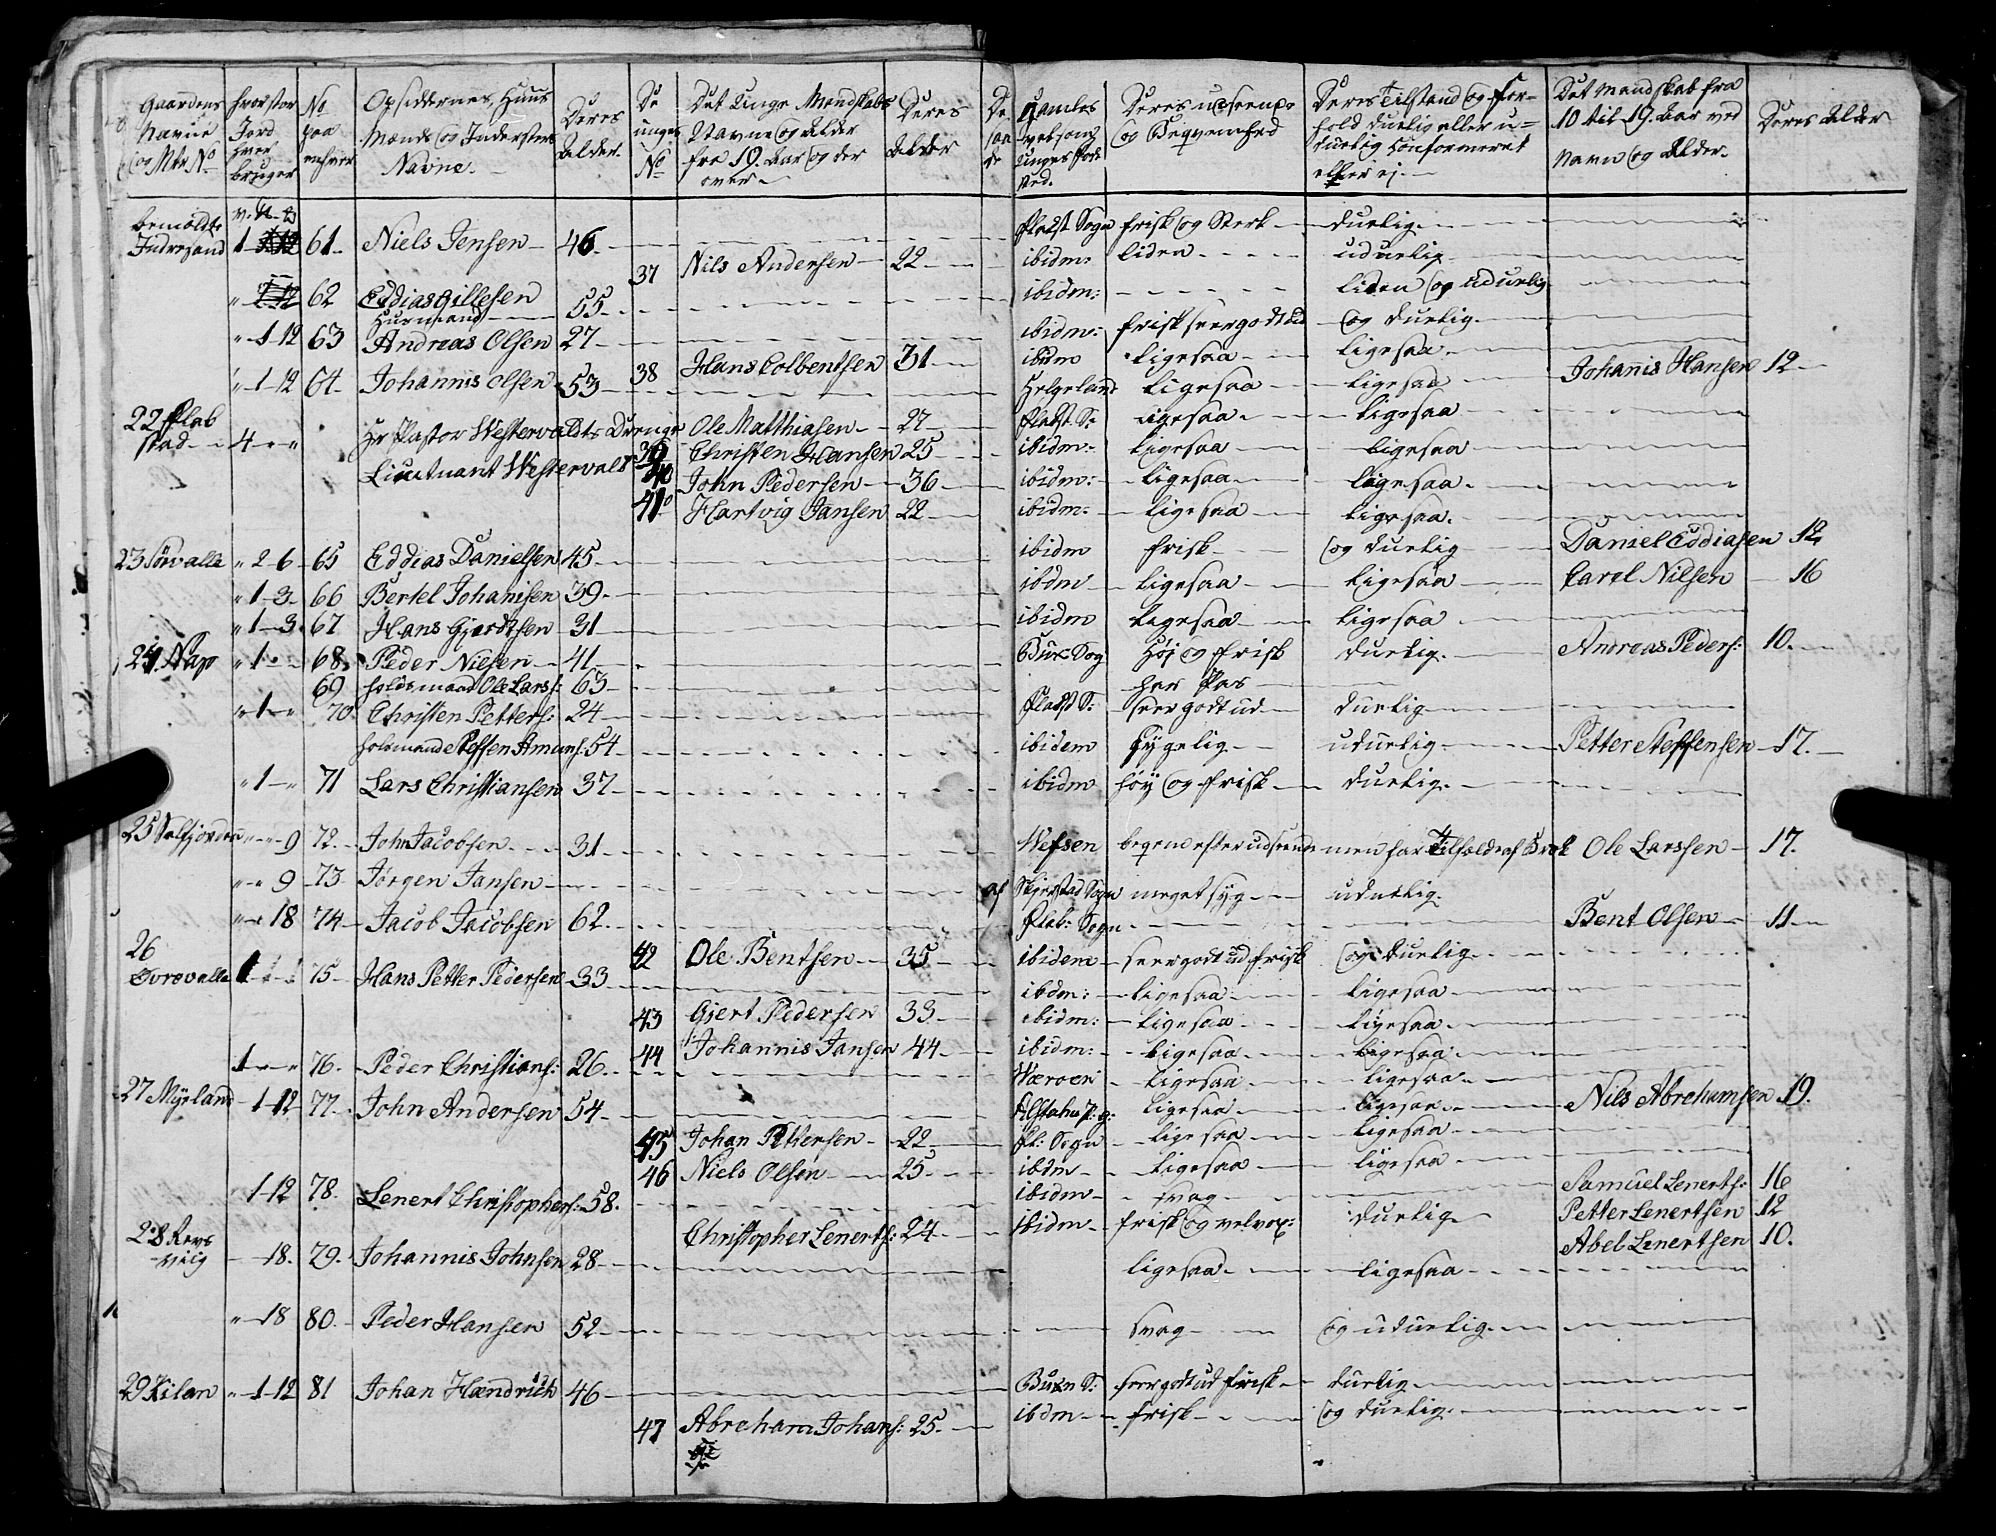 Gaardens Navne og Mtr No | hvor stor Jord hver bruger | No paa enhver | Opsiddernes, Huus Mænds og Inderstes Navne. | Deres Alder. | De unges No | Det Unge Mandskabs Navne og Alder fra 19. Aar og der over | Deres Alder | De gamles saavelsom de Unges Føde Sted. | Deres udseende og Beqvemhed | Deres Tilstand og Forhold duelig eller uduelig Conformeret eller ej. | Det Mandskab fra 10 til 19. Aar ved Navn og Alder. | Deres Alder
Indresand 1 61 Niels Jensen 46 | Flakst Sogn frisk og Sterk duelig
37 Nils Andersen 22 | ibidm: liden uduelig
" 1 12 62 Eddias Gillesen 55 | ibidm: liden og uduelig
Huusmand
" 1 12 63 Andreas Olsen 27 | ibidm: frisk seer godt ud og duelig
38 Hans Colbentsen 31 | ibidm ligesaa ligesaa
" 1 12 64 Johannis Olsen 53 | Helgeland ligesaa ligesaa | Johanis Hansen 12
22 Flakstad 4 " " Hr Pastor Westervaldts Drenge Ole Matthiasen 27 | Flakst S: ligesaa ligesaa
39 Christen Hansen 25 | ibidm: ligesaa ligesaa
Lieutnant Westervalt 40 John Pedersen 36 | ibidm: ligesaa ligesaa
41 Hartvig Jansen 22 | ibidm: ligesaa ligesaa.
23 " 2 6 65 Eddias Danielsen 45 | ibidm frisk og duelig | Daniel Eddiasen 12
" 1 3 66 Bertel Johanisen 39 | ibdm ligesaa ligesaa | Carel Nilsen 16
" 1 3 67 Hans Gjerdtsen 31 | ibidm ligesaa ligesaa
24 Nap " 1 68 Peder Nielsen 41 | Sogn Høj og frisk duelig. | Andreas Peders: 10.
69 Holdsmand Ole Lars: 63 | har Pas
" 1 " 70 Christen Petters: 24 | Flakst S: seer godt ud duelig
Holdsmand Steffen Amuns: 54 | ibidem sygelig uduelig | Petter Steffensen 17.
" 1 " 71 Lars Christiansen 37 | ibidm høy og frisk duelig.
25 " " 9 72 John Jacobsen 31 | Wefsen beqvem efter udseende men har Tilfælde af Brok | Ole Larssen 17.
" " 9 73 Jørgen Jansen | af Skjerstad Sogn meget syg uduelig.
" " 18 74 Jacob Jacobsen 62. | Flak: Sogn | Bent Olsen 11
42 Ole Bentsen 35 | ibidem seer godt ud frisk og duelig
26 Evrevalle 1 75 Hans Petter Pedersen 33 | ibdm: ligesaa ligesaa
43 Gjert Pedersen 33 | ibidm: ligesaa ligesaa
44 Johannis Jansen 44 | ibidm: ligesaa ligesaa
1 " " 76. Peder Christians: 26. | Wæroen ligesaa ligesaa
27 Myrland 1 12 77 John Andersen 54 | ligesaa ligesaa | Nils Abrehamsen 19.
45 Johan Pettersen 22 | Fl: Sogn ligesaa ligesaa
46 Niels Olsen 25 | ibdm ligesaa ligesaa
" 1 12 78. Lenert Christophers: 58. | ibidm svag | Samuel Lenerts: 16
Christopher Lenerts: 24 | ibidm frisk og velvox: duelig | Petter Lenertsen 12
28 18. 79. Johannis Johnsen 28 | ligesaa ligesaa | Abel Lenertsen 10.
" 18 80 Peder Hansen 52 | svag og uduelig
29 Kilan " 1 12 81 Johan Hændrich 46 | Buxn S: seer godt ud frisk duelig
47 Abreham Johans: 25. | ibdm frisk og duelig